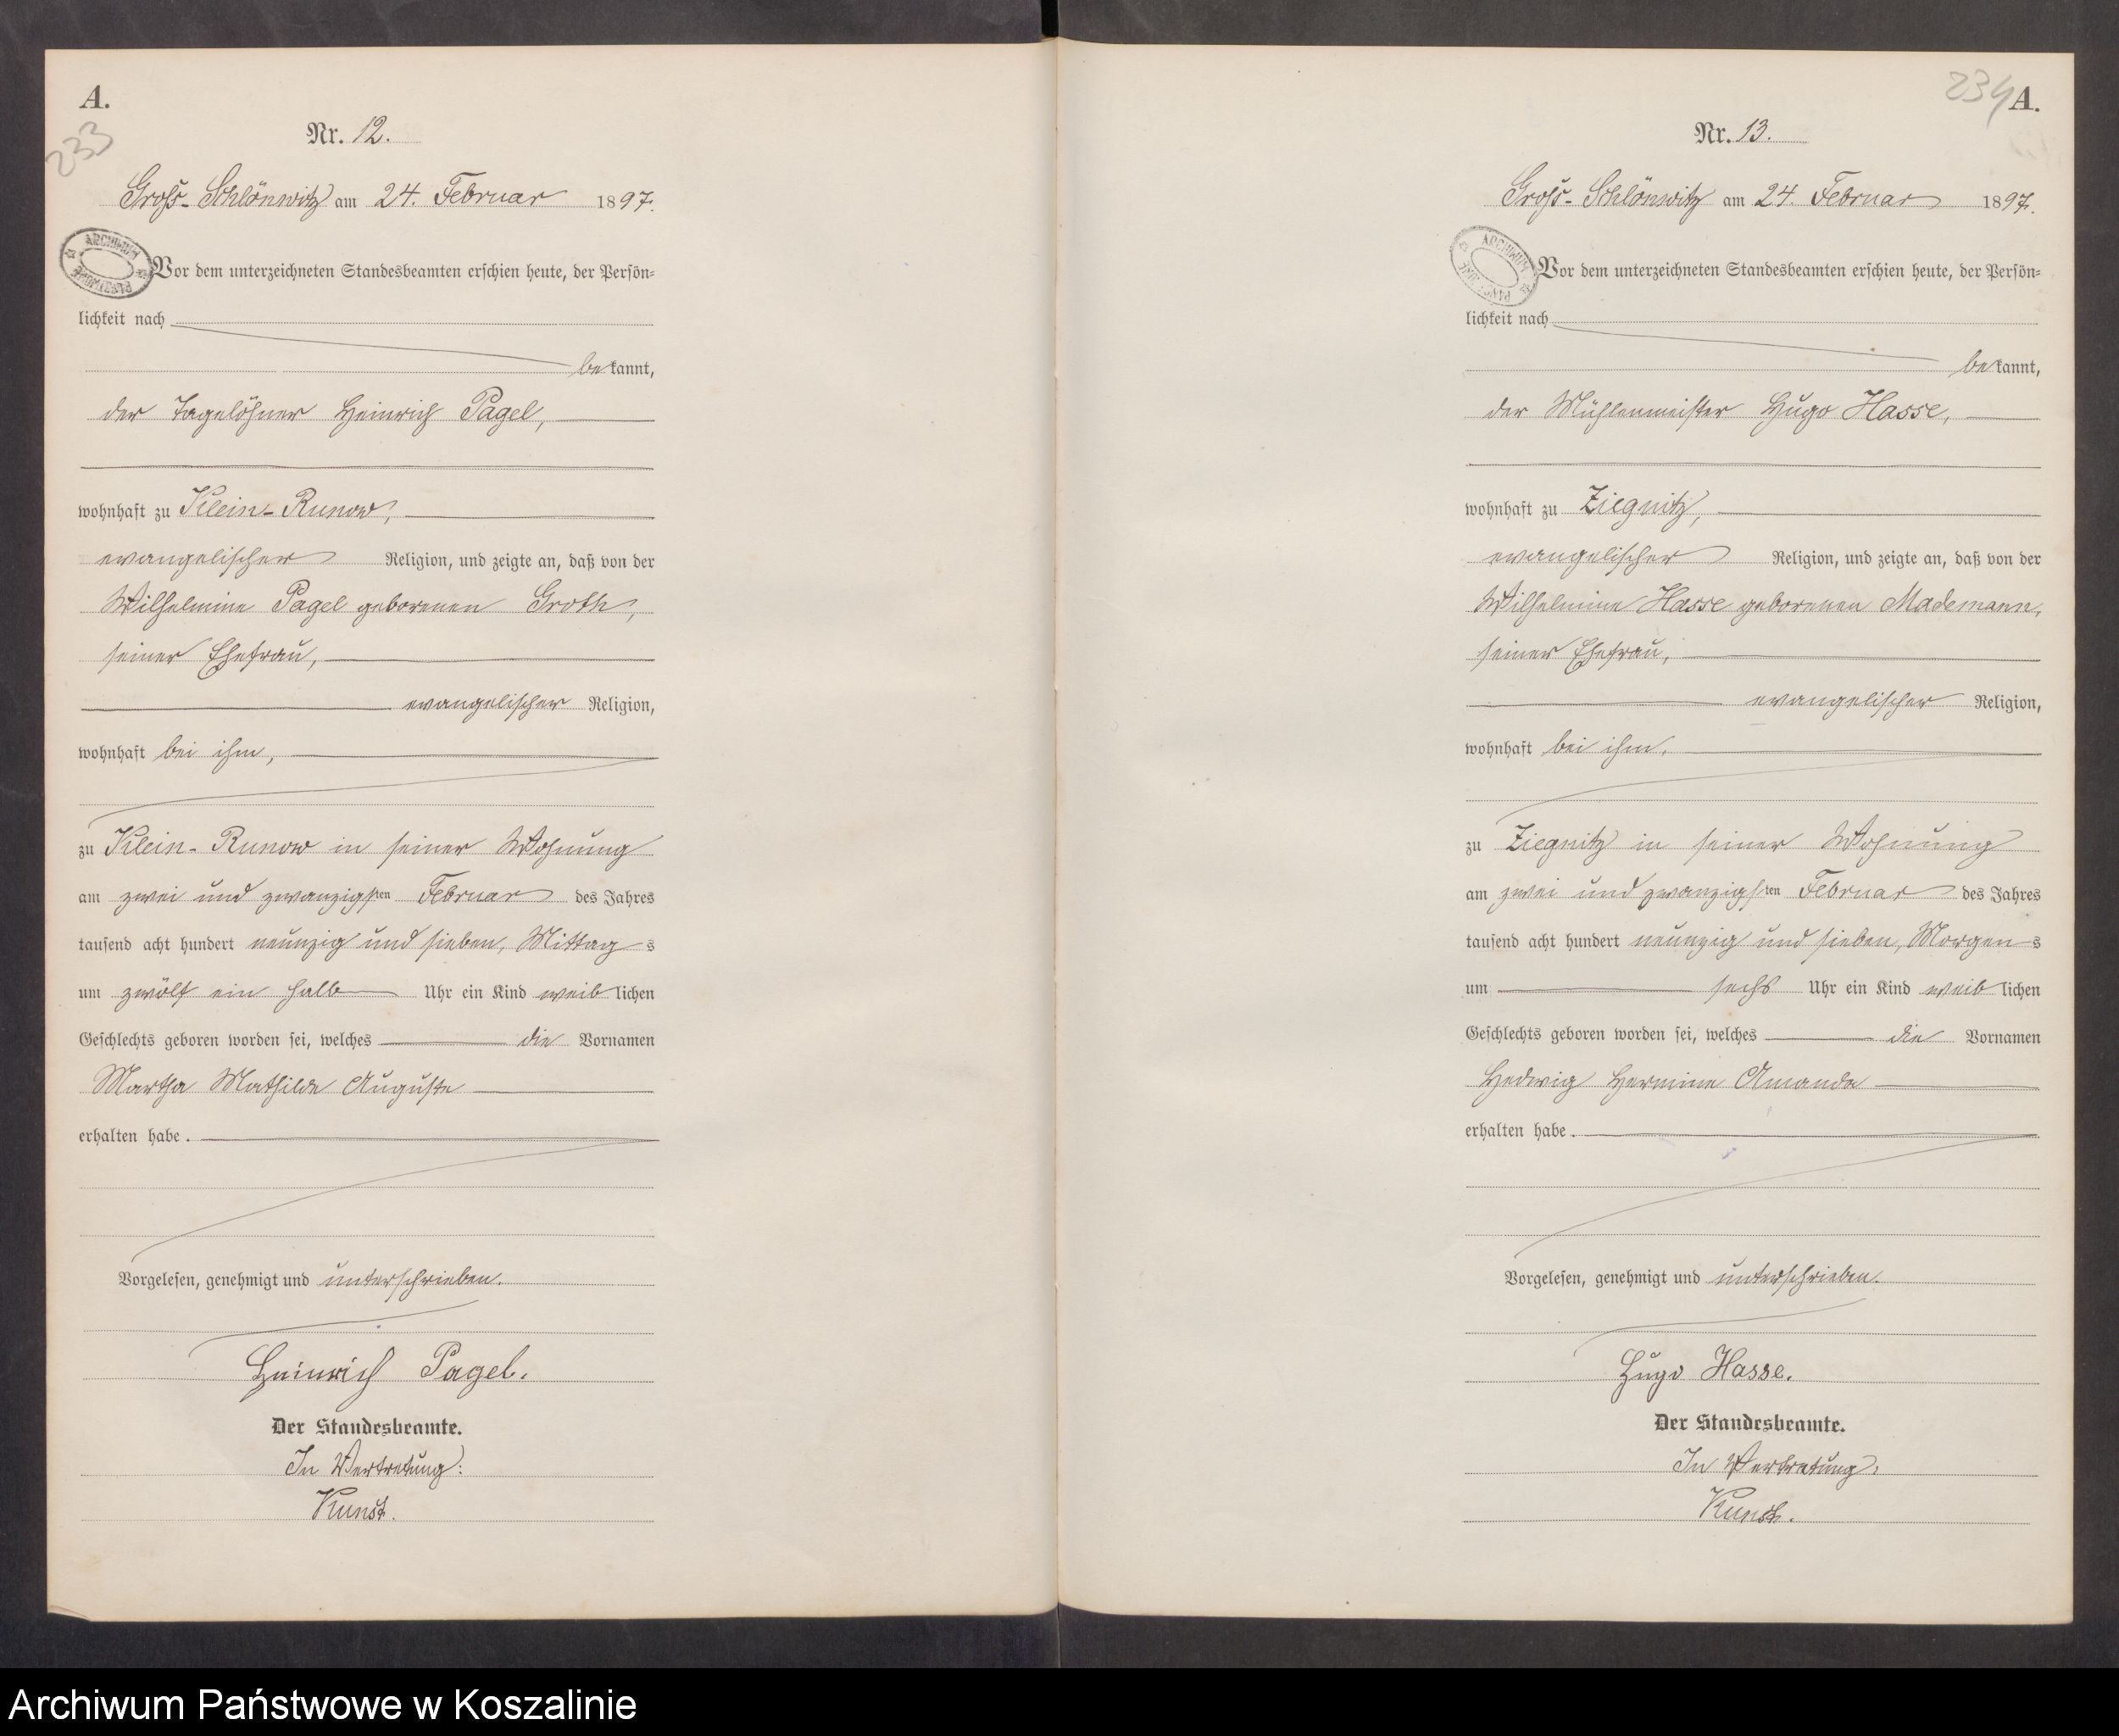 A.
233
Nr. 12.
Groß-Schlönwitz am 24. Februar 1897.
ARCHIWUM PAŃSTWOWE
Vor dem unterzeichneten Standesbeamten erschien heute, der Persön=
lichkeit nach
bekannt,
der Tagelöhner Heinrich Pagel,
wohnhaft zu Klein-Runow,
evangelischer Religion, und zeigte an, daß von der
Wilhelmine Pagel geborenen Groth,
seiner Ehefrau,
evangelischer Religion,
wohnhaft bei ihm,
zu Klein-Runow in seiner Wohnung
am zwei und zwanzigsten Februar des Jahres
tausend acht hundert neunzig und sieben, Mittags
um zwölf ein halb Uhr ein Kind weiblichen
Geschlechts geboren worden sei, welches die Vornamen
Martha Mathilde Auguste
erhalten habe.
Vorgelesen, genehmigt und unterschrieben.
Heinrich Pagel.
Der Standesbeamte.
In Vertretung:
Kunst.
234
A.
Nr. 13.
Groß-Schlönwitz am 24. Februar 1897.
ARCHIWUM PAŃSTWOWE
Vor dem unterzeichneten Standesbeamten erschien heute, der Persön=
lichkeit nach
bekannt,
der Mühlenmeister Hugo Hasse,
wohnhaft zu Ziegnitz,
evangelischer Religion, und zeigte an, daß von der
Wilhelmine Hasse geborenen Mademann,
seiner Ehefrau,
evangelischer Religion,
wohnhaft bei ihm,
zu Ziegnitz in seiner Wohnung
am zwei und zwanzigsten Februar des Jahres
tausend acht hundert neunzig und sieben, Morgens
um sechs Uhr ein Kind weiblichen
Geschlechts geboren worden sei, welches die Vornamen
Hedwig Hermine Amanda
erhalten habe.
Vorgelesen, genehmigt und unterschrieben.
Hugo Hasse.
Der Standesbeamte.
In Vertretung:
Kunst.
Archiwum Państwowe w Koszalinie